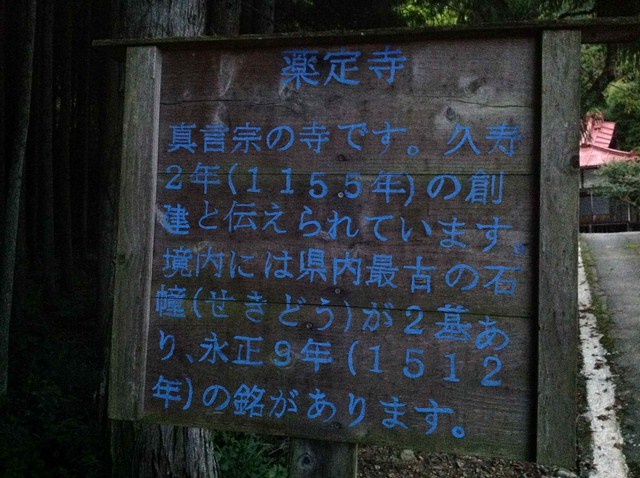 薬定寺
真言宗の寺です。久寿
2年(1155年)の創
建と伝えられています。
境内には県内最古の石
幢(せきどう)が2基あ
り、永正9年(1512
年)の銘があります。